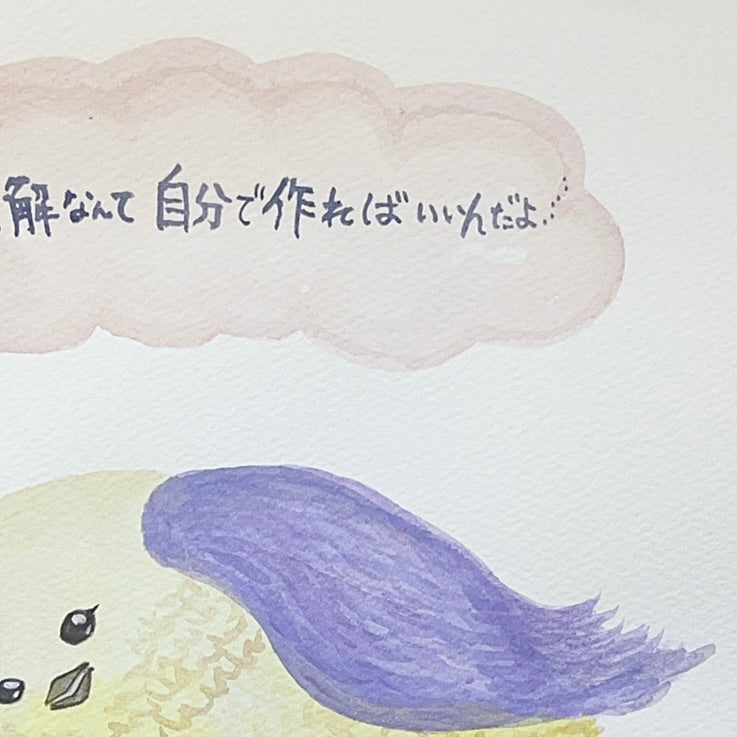 解なんて 自分で作ればいいんだよ……